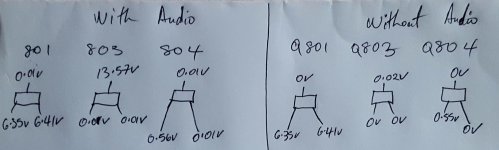 With Audio
Without Audio
801 803 804
Q801 Q803 Q804
0.01V 13.57V 0.01V
0V 0.02V 0V
6.35V 6.41V 0.01V 0.01V 0.56V 0.01V
6.35V 6.41V 0V 0V 0.55V 0V